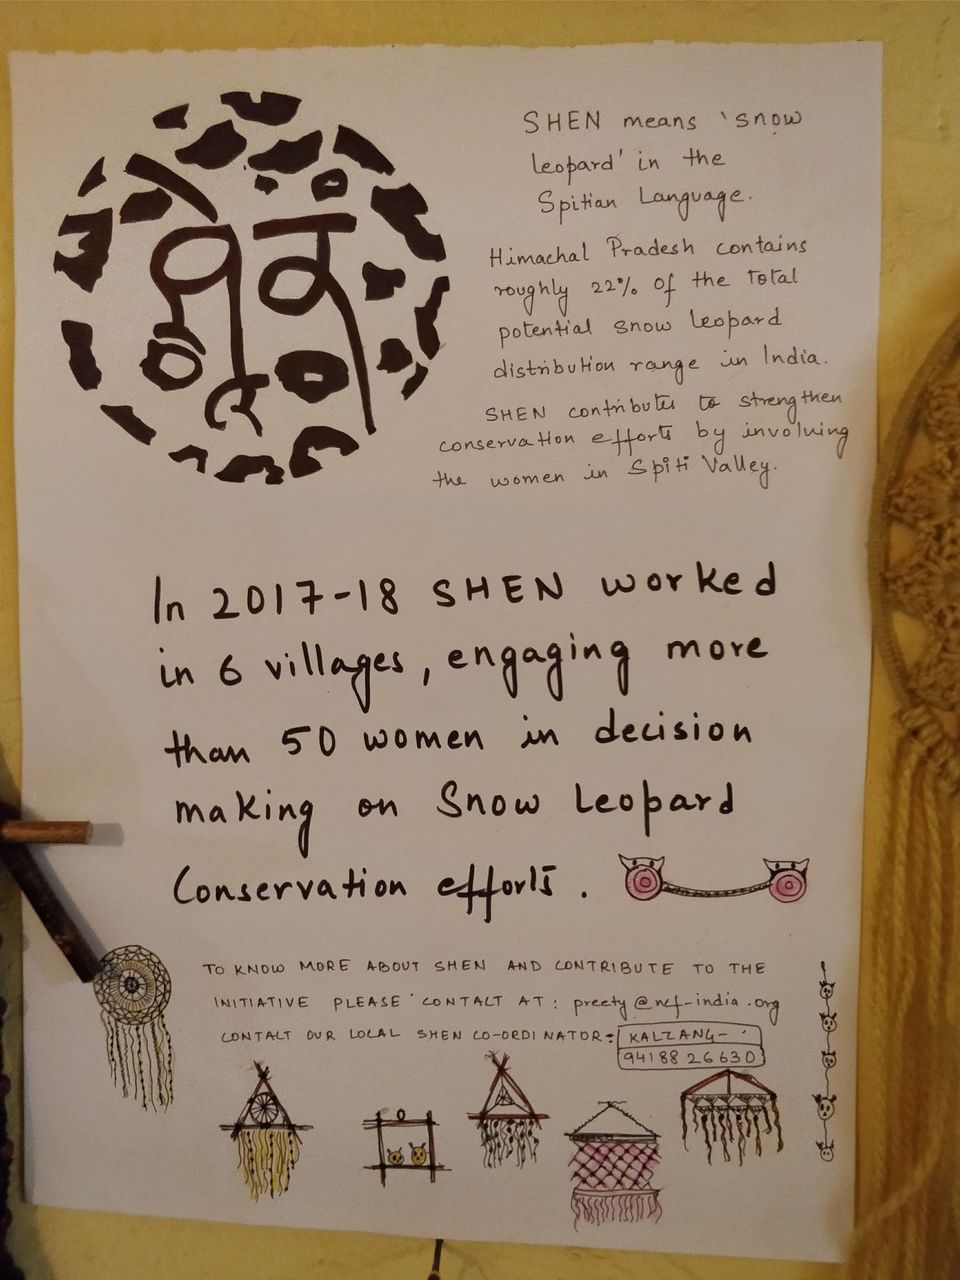 SHEN means 'snow
leopard' in the
Spitian Language.
Himachal Pradesh contains
roughly 22% of the total
potential snow leopard
distribution range in India.
SHEN contributes to strengthen
conservation efforts by involving
the women in Spiti Valley.
In 2017-18 SHEN worked
in 6 villages, engaging more
than 50 women in decision
making on Snow Leopard
Conservation efforts.
TO KNOW MORE ABOUT SHEN AND CONTRIBUTE TO THE
INITIATIVE PLEASE CONTACT AT: preety@ncf-india.org
CONTACT OUR LOCAL SHEN CO-ORDINATOR:
KALZANG-
94188 26630